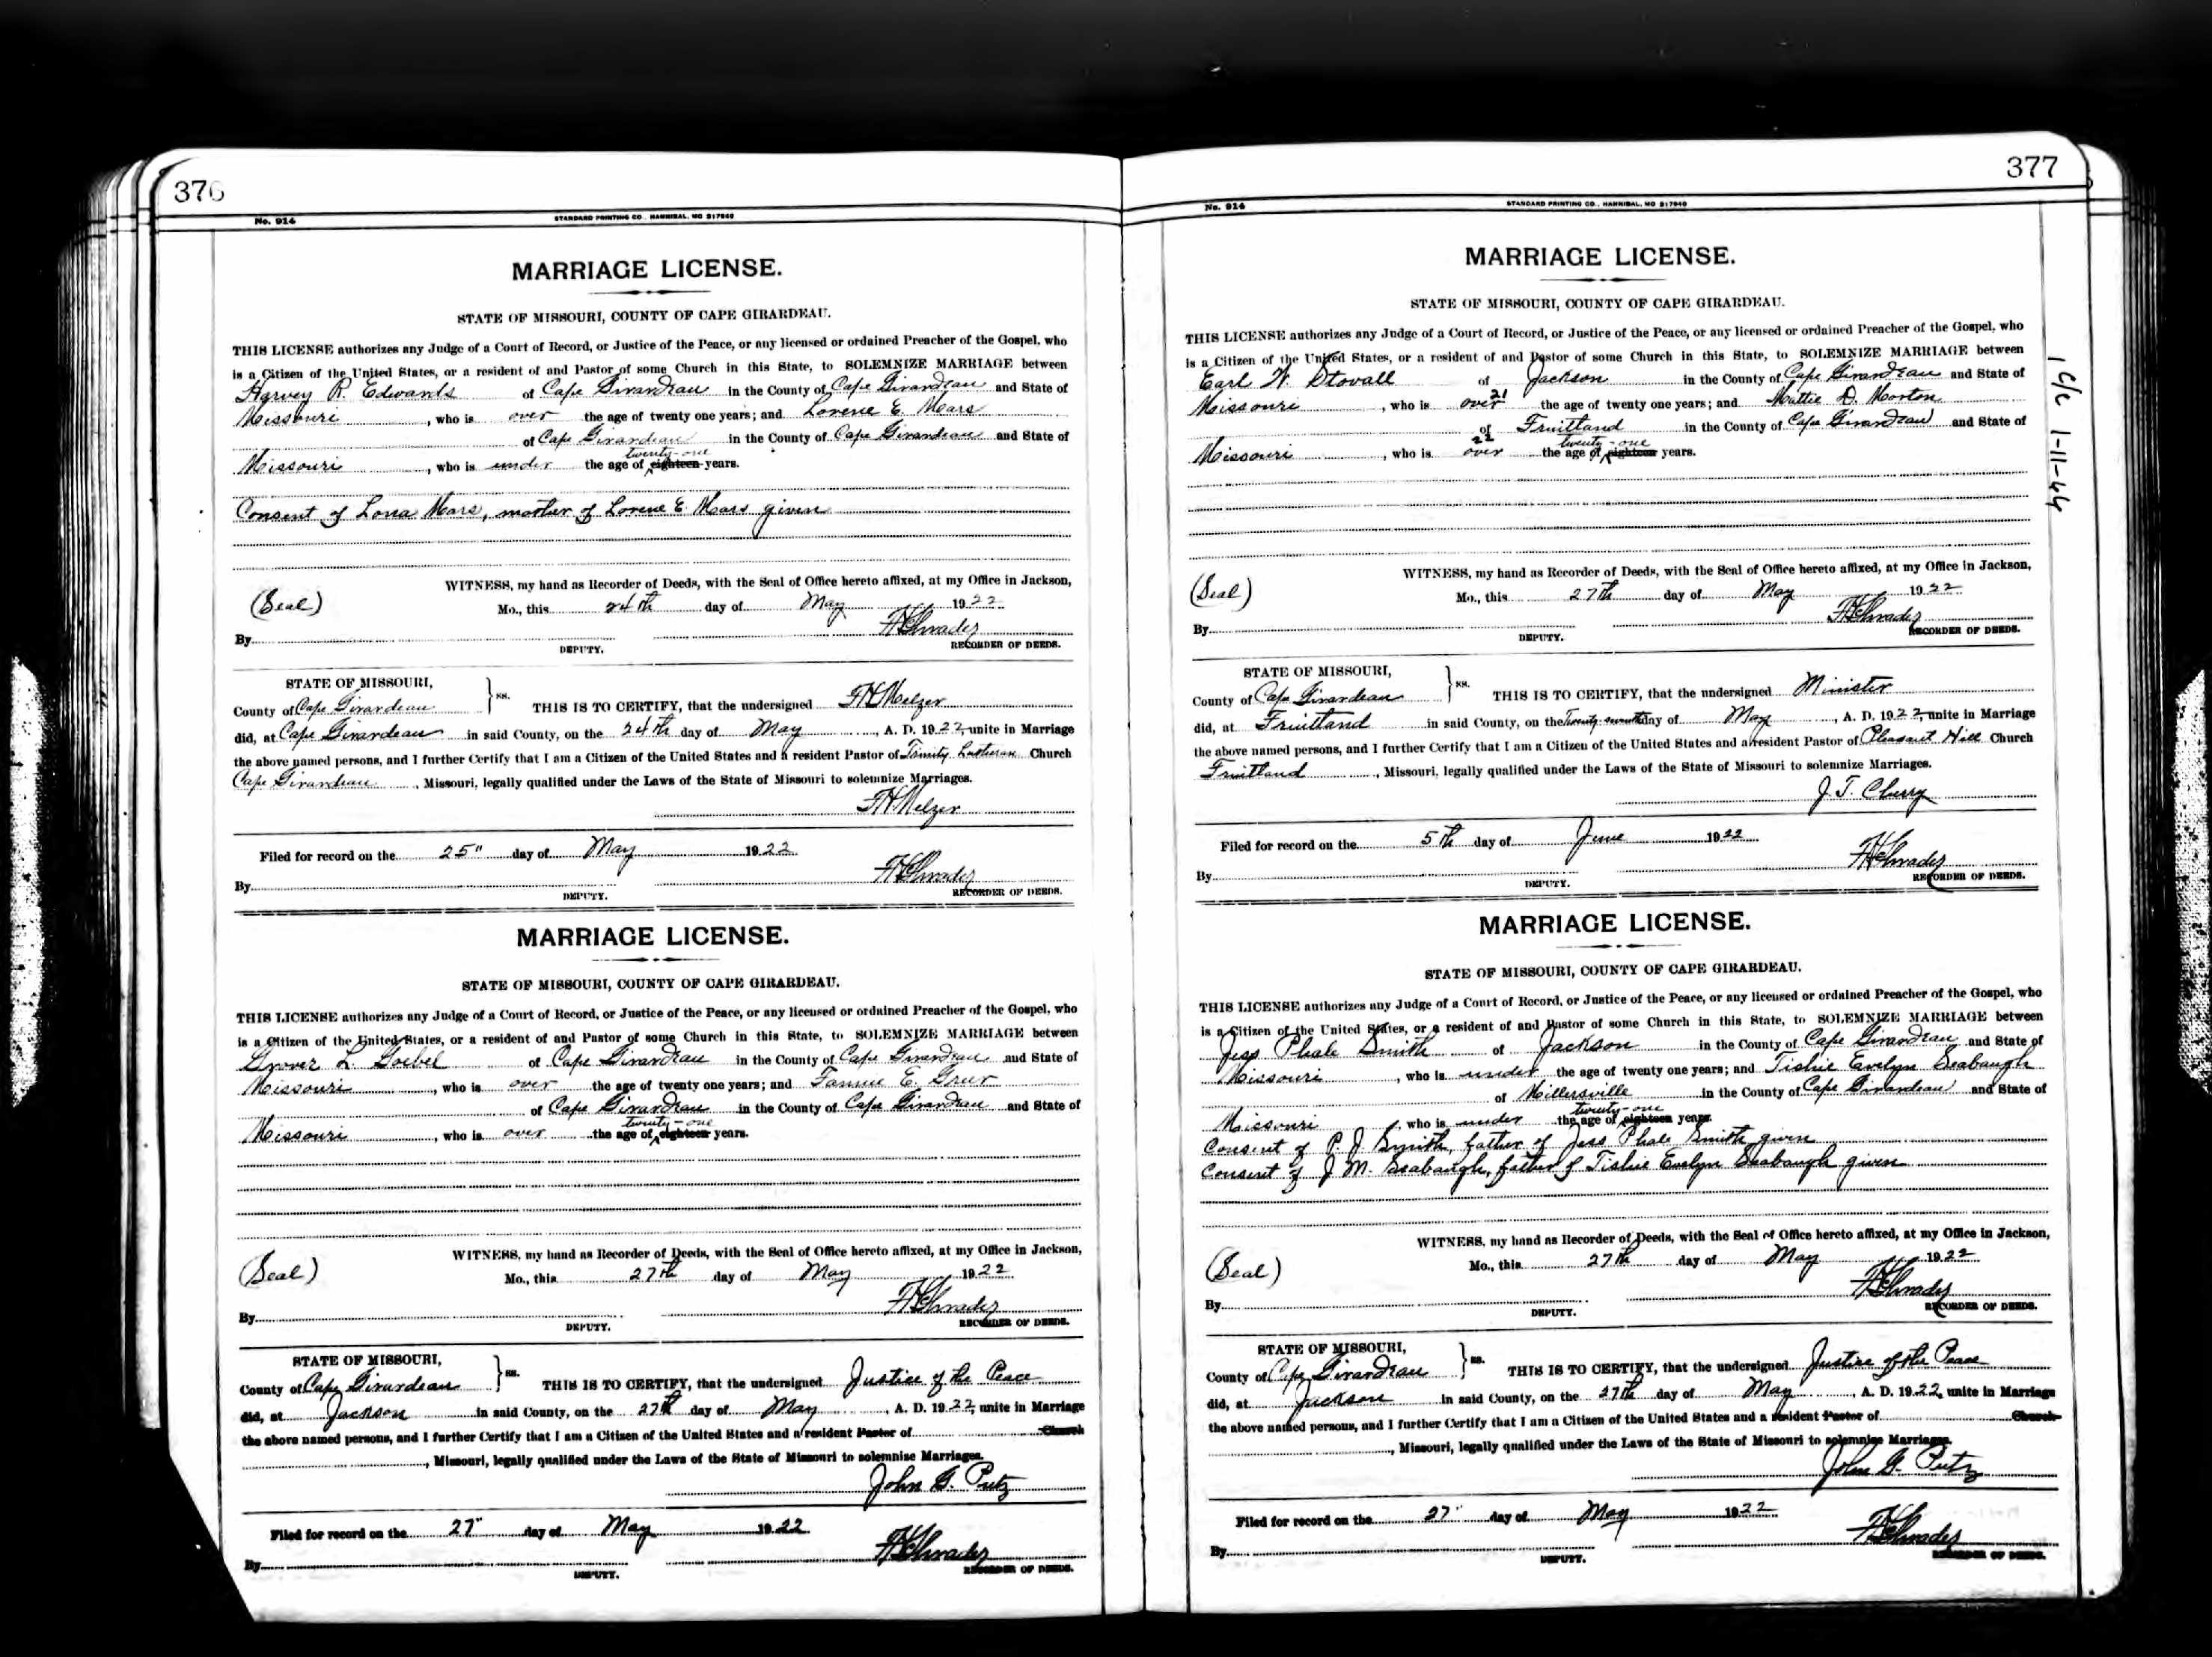 376
No. 914 STANDARD PRINTING CO., HANNIBAL, MO 217940
MARRIAGE LICENSE.
STATE OF MISSOURI, COUNTY OF CAPE GIRARDEAU.
THIS LICENSE authorizes any Judge of a Court of Record, or Justice of the Peace, or any licensed or ordained Preacher of the Gospel, who
is a Citizen of the United States, or a resident of and Pastor of some Church in this State, to SOLEMNIZE MARRIAGE between
Harvey R. Edwards of Cape Girardeau in the County of Cape Girardeau and State of
Missouri, who is over the age of twenty one years; and Lorene E. Mars
of Cape Girardeau in the County of Cape Girardeau and State of
twenty-one
Missouri, who is under the age of eighteen years.
Consent of Lona Mars, mother of Lorene E Mars given
WITNESS, my hand as Recorder of Deeds, with the Seal of Office hereto affixed, at my Office in Jackson,
(Seal) Mo., this 24th day of May 1922
By
DEPUTY. RECORDER OF DEEDS.
STATE OF MISSOURI,
County of Cape Girardeau } ss. THIS IS TO CERTIFY, that the undersigned FH Melzer
did, at Cape Girardeau in said County, on the 24th day of May, A. D. 1922, unite in Marriage
the above named persons, and I further Certify that I am a Citizen of the United States and a resident Pastor of Trinity Lutheran Church
Cape Girardeau, Missouri, legally qualified under the Laws of the State of Missouri to solemnize Marriages.
FH Melzer
Filed for record on the 25" day of May 1922
By
DEPUTY. RECORDER OF DEEDS.
MARRIAGE LICENSE.
STATE OF MISSOURI, COUNTY OF CAPE GIRARDEAU.
THIS LICENSE authorizes any Judge of a Court of Record, or Justice of the Peace, or any licensed or ordained Preacher of the Gospel, who
is a Citizen of the United States, or a resident of and Pastor of some Church in this State, to SOLEMNIZE MARRIAGE between
Grover L. Goebel of Cape Girardeau in the County of Cape Girardeau and State of
Missouri, who is over the age of twenty one years; and Fannie E.
of Cape Girardeau in the County of Cape Girardeau and State of
twenty-one
Missouri, who is over the age of eighteen years.
WITNESS, my hand as Recorder of Deeds, with the Seal of Office hereto affixed, at my Office in Jackson,
(Seal) Mo., this 27th day of May 1922
By
DEPUTY. RECORDER OF DEEDS.
STATE OF MISSOURI,
County of Cape Girardeau } ss. THIS IS TO CERTIFY, that the undersigned Justice of the Peace
did, at Jackson in said County, on the 27th day of May, A. D. 1922, unite in Marriage
the above named persons, and I further Certify that I am a Citizen of the United States and a resident Pastor of Church
, Missouri, legally qualified under the Laws of the State of Missouri to solemnize Marriages.
John G. Putz
Filed for record on the 27" day of May 1922
By
DEPUTY. RECORDER OF DEEDS.
377
No. 914 STANDARD PRINTING CO., HANNIBAL, MO 217940
MARRIAGE LICENSE.
STATE OF MISSOURI, COUNTY OF CAPE GIRARDEAU.
THIS LICENSE authorizes any Judge of a Court of Record, or Justice of the Peace, or any licensed or ordained Preacher of the Gospel, who
is a Citizen of the United States, or a resident of and Pastor of some Church in this State, to SOLEMNIZE MARRIAGE between
Earl W. Stovall of Jackson in the County of Cape Girardeau and State of
21
Missouri, who is over the age of twenty one years; and Mattie D. Morton
of Fruitland in the County of Cape Girardeau and State of
22 twenty-one
Missouri, who is over the age of eighteen years.
WITNESS, my hand as Recorder of Deeds, with the Seal of Office hereto affixed, at my Office in Jackson,
(Seal) Mo., this 27th day of May 1922
By
DEPUTY. RECORDER OF DEEDS.
STATE OF MISSOURI,
County of Cape Girardeau } ss. THIS IS TO CERTIFY, that the undersigned Minister
did, at Fruitland in said County, on the Twenty seventh day of May, A. D. 1922, unite in Marriage
the above named persons, and I further Certify that I am a Citizen of the United States and a resident Pastor of Pleasant Hill Church
Fruitland, Missouri, legally qualified under the Laws of the State of Missouri to solemnize Marriages.
J. T. Cherry
Filed for record on the 5th day of June 1922
By
DEPUTY. RECORDER OF DEEDS.
1 c/c 1-11-44
MARRIAGE LICENSE.
STATE OF MISSOURI, COUNTY OF CAPE GIRARDEAU.
THIS LICENSE authorizes any Judge of a Court of Record, or Justice of the Peace, or any licensed or ordained Preacher of the Gospel, who
is a Citizen of the United States, or a resident of and Pastor of some Church in this State, to SOLEMNIZE MARRIAGE between
Jess Phale Smith of Jackson in the County of Cape Girardeau and State of
Missouri, who is under the age of twenty one years; and Tishie Evelyn Seabaugh
of Millersville in the County of Cape Girardeau and State of
twenty-one
Missouri, who is under the age of eighteen years.
Consent of P. J. Smith, father of Jess Phale Smith given
Consent of J M. Seabaugh, father of Tishie Evelyn Seabaugh given
WITNESS, my hand as Recorder of Deeds, with the Seal of Office hereto affixed, at my Office in Jackson,
(Seal) Mo., this 27th day of May 1922
By
DEPUTY. RECORDER OF DEEDS.
STATE OF MISSOURI,
County of Cape Girardeau } ss. THIS IS TO CERTIFY, that the undersigned Justice of the Peace
did, at Jackson in said County, on the 27th day of May, A. D. 1922, unite in Marriage
the above named persons, and I further Certify that I am a Citizen of the United States and a resident Pastor of Church
, Missouri, legally qualified under the Laws of the State of Missouri to solemnize Marriages.
John G. Putz
Filed for record on the 27" day of May 1922
By
DEPUTY. RECORDER OF DEEDS.